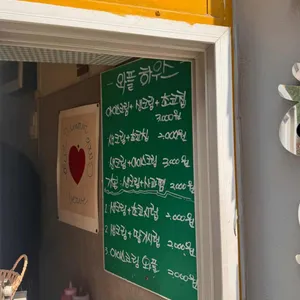 와플 하우스
아이스크림 + 생크림 + 초코칩
3,000원
생크림 + 초코칩 2,000원
생크림 + 아이스크림 3,000원
기본 생크림 + 사과잼 2,000원
1 생크림 + 초코시럽 2,000원
2 생크림 + 딸기시럽 2,000원
3 아이스크림 와플 2,000원